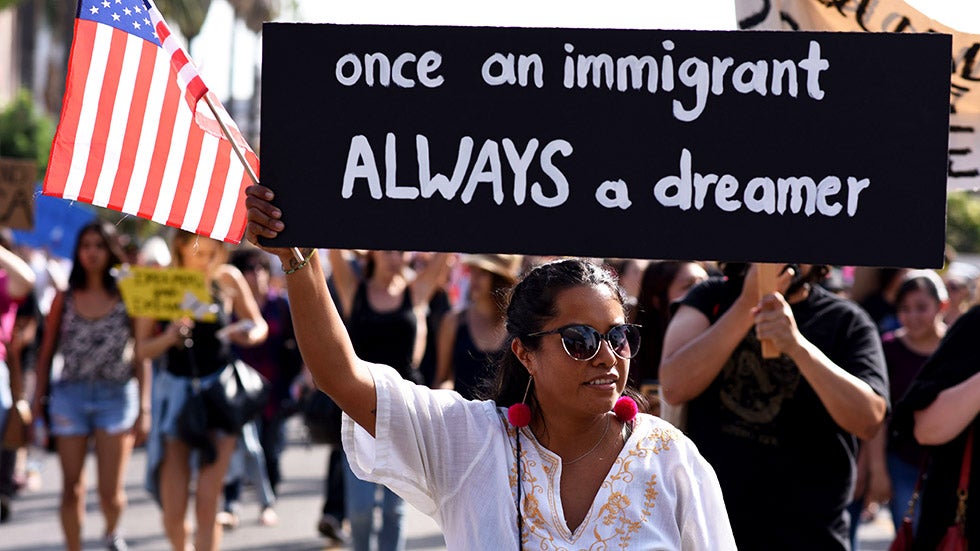 once an immigrant
ALWAYS a dreamer